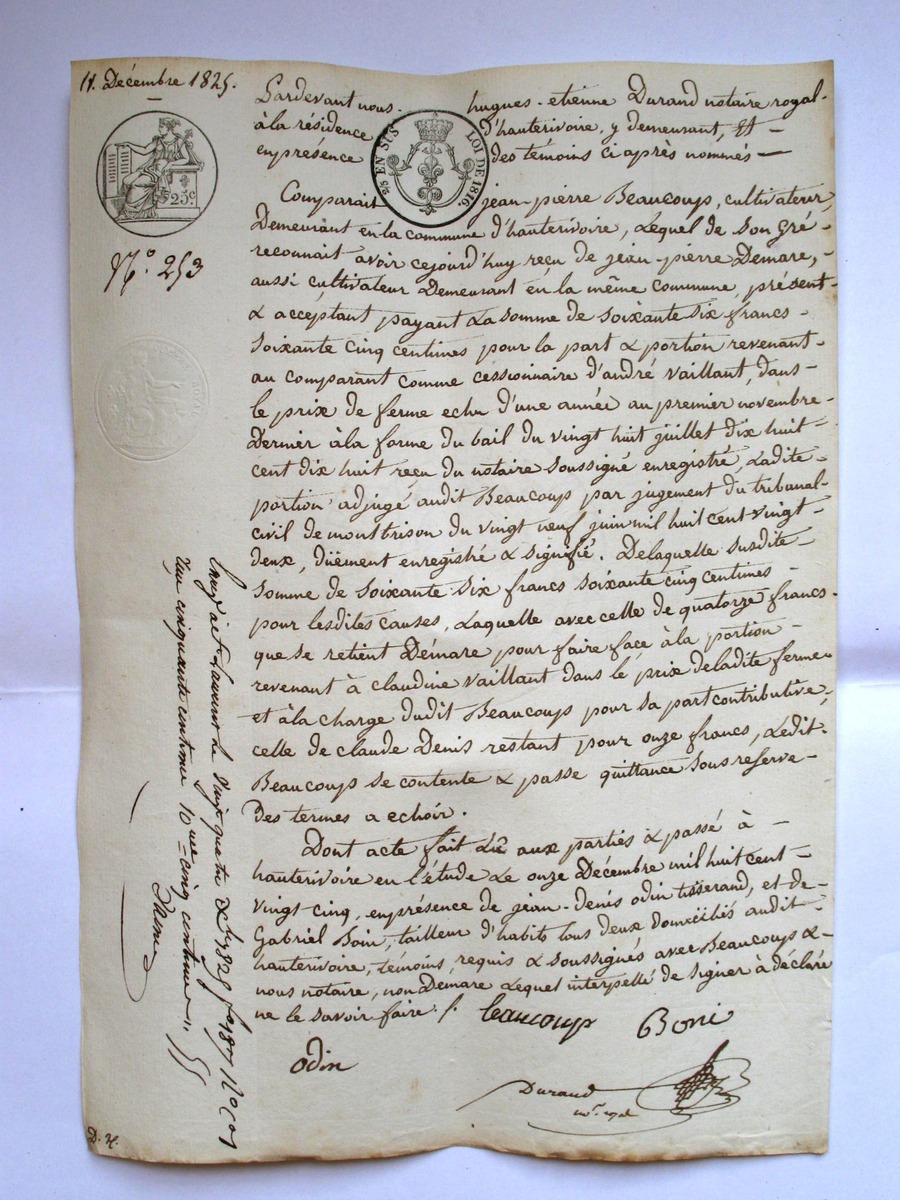 11. Décembre 1825.
25 c
¼ EN SUS LOI DE 1816.
N.° 253
Pardevant nous hugues-etienne Durand notaire royal
à la résidence d'hauterivoire, y demeurant, Et
en présence des témoins ci après nommés
Comparait jean-pierre Beaucoup, cultivateur,
Demeurant en la commune d'hauterivoire, Lequel de son gré
reconnait avoir cejourd'huy reçu de jean-pierre Demare,
aussi cultivateur Demeurant en la même commune, présent
& acceptant payant La somme de soixante six francs
soixante cinq centimes pour la part & portion revenant
au comparant comme cessionnaire d'andré vaillant, dans
le prix de ferme echu d'une année au premier novembre
Dernier à la forme du bail du vingt huit juillet dix huit
cent dix huit reçu du notaire soussigné enregistré, Ladite
portion adjugé audit Beaucoup par jugement du tribunal
civil de montbrison du vingt neuf juin mil huit cent vingt
deux, Düement enregistré & signifié. Delaquelle susdite
somme de soixante six francs soixante cinq centimes
pour lesdites causes, Laquelle avec celle de quatorze francs
que se retient Démare pour faire face à la portion
revenant à claudine vaillant dans le prix deladite ferme
et à la charge dudit Beaucoup pour sa part contributive,
celle de claude Denis restant pour onze francs, Ledit
Beaucoup se contente & passe quittance sous reserve
Des termes a echoir.
Dont acte fait Lû aux parties & passé à
hauterivoire en l'étude Le onze Décembre mil huit cent
vingt cinq, en présence de jean-Denis odin tisserand, et de
Gabriel Boin, tailleur d'habits tous deux domiciliés audit
hauterivoire, témoins requis & soussignés avec Beaucoup &
nous notaire, non Demare Lequel interpellé de signer à déclaré
ne le savoir faire ./.
beaucoup Boni
odin
Durand
n.re royal
St Laurent le vingt quatre Xbre 1825 f° 187 R° C
cinquante centimes 10me cinq centimes
D. H.